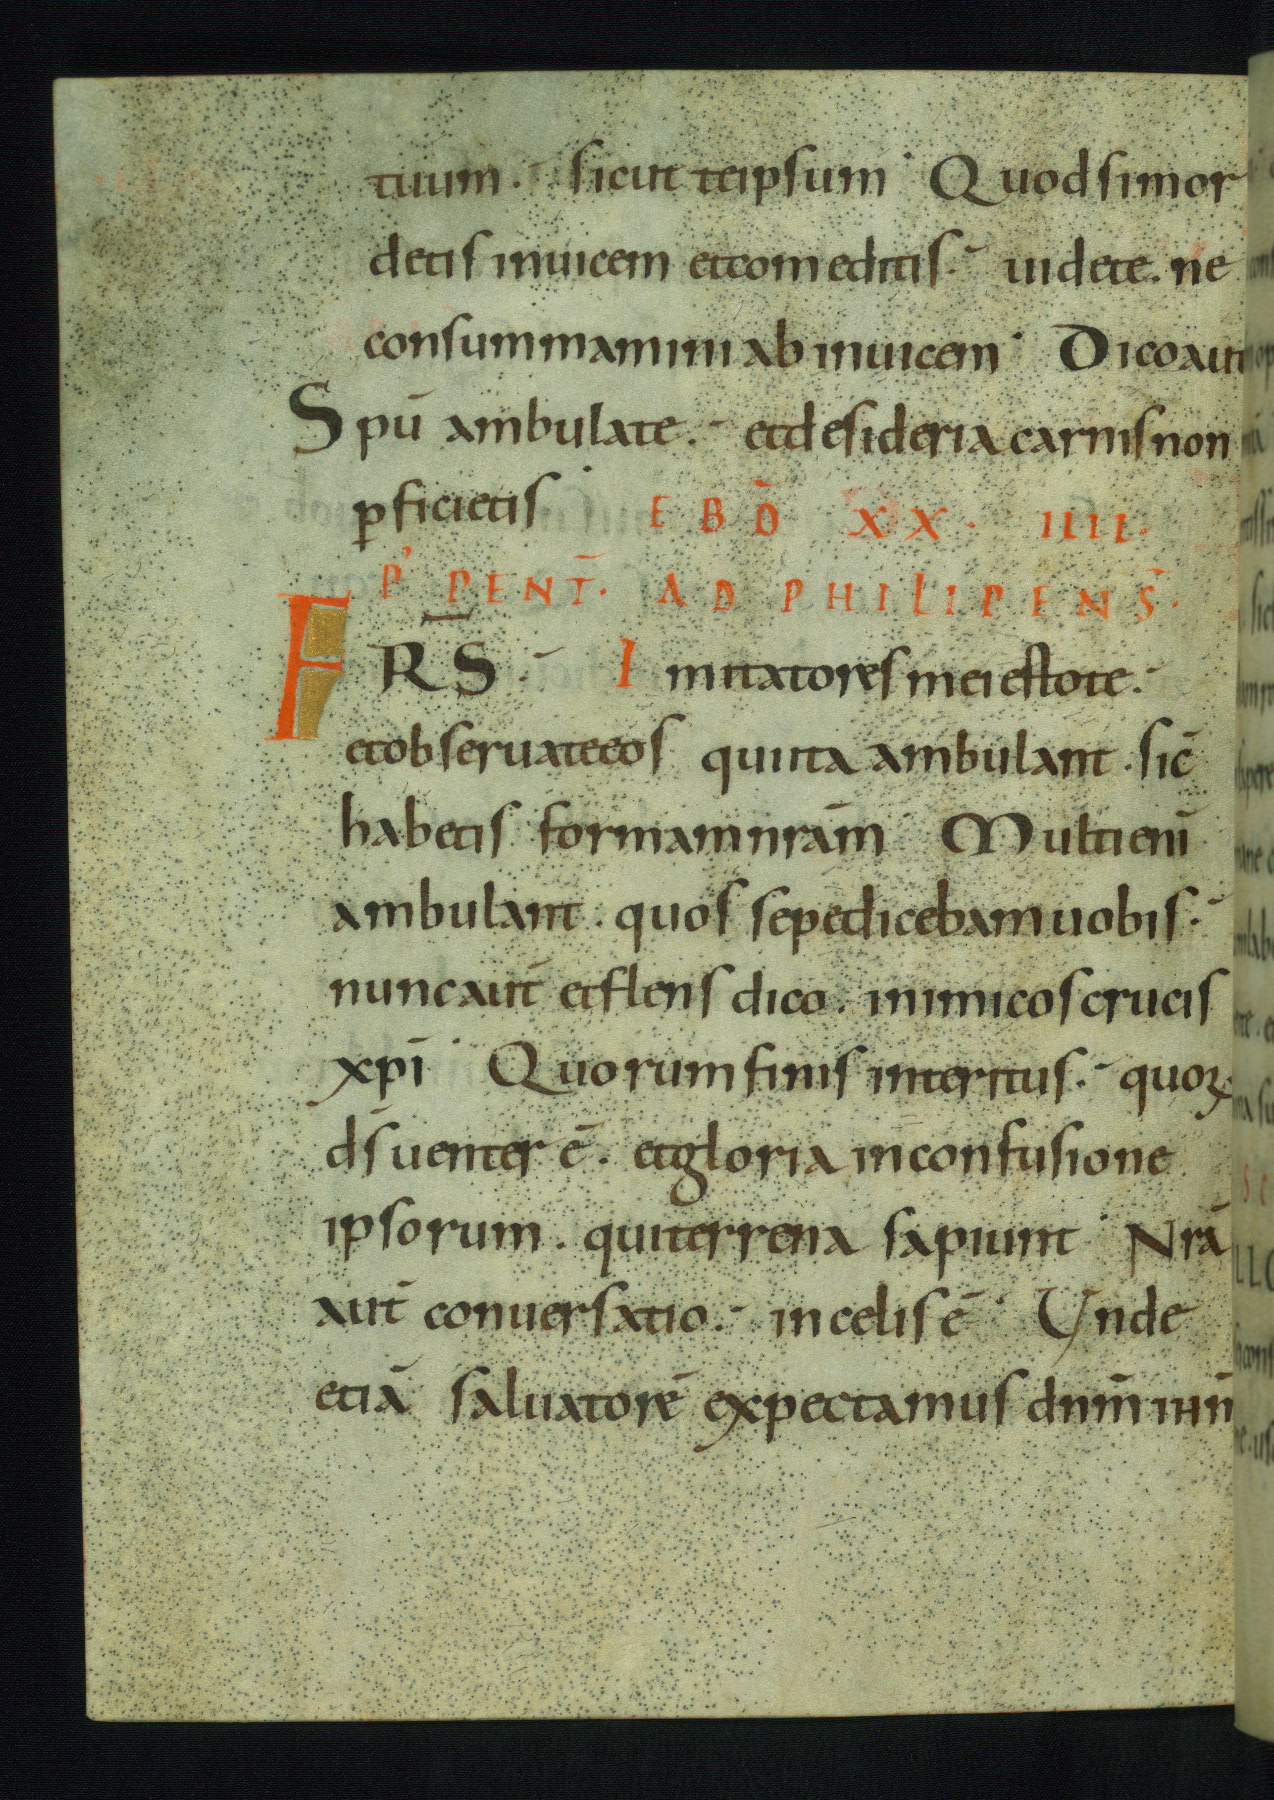 tuum. sicut teipsum Quodsimor
detis inuicem etcomeditis. uidete. ne
consummamini abinuicem Dicoaut
Spū ambulate. etdesideria carnisnon
ꝑficietis EBD̄ XX. IIII.
P' PENT̄. AD PHILIPENS̄.
FRS̄. Imitatores meiestote.
etobseruateeos quiita ambulant. sic̄
habetis formamnrām Multienī
ambulant. quos sepedicebamuobis.
nuncaut̄ etflens dico. inimicoscrucis
xpī Quorumfinis interitus. quoꝝ
ds̄ uenter ē. etgloria inconfusione
ipsorum. quiterrena sapiunt Nrā
aut̄ conuersatio. incelis ē Unde
etiā saluatorē expectamus dnm̄ ihm̄